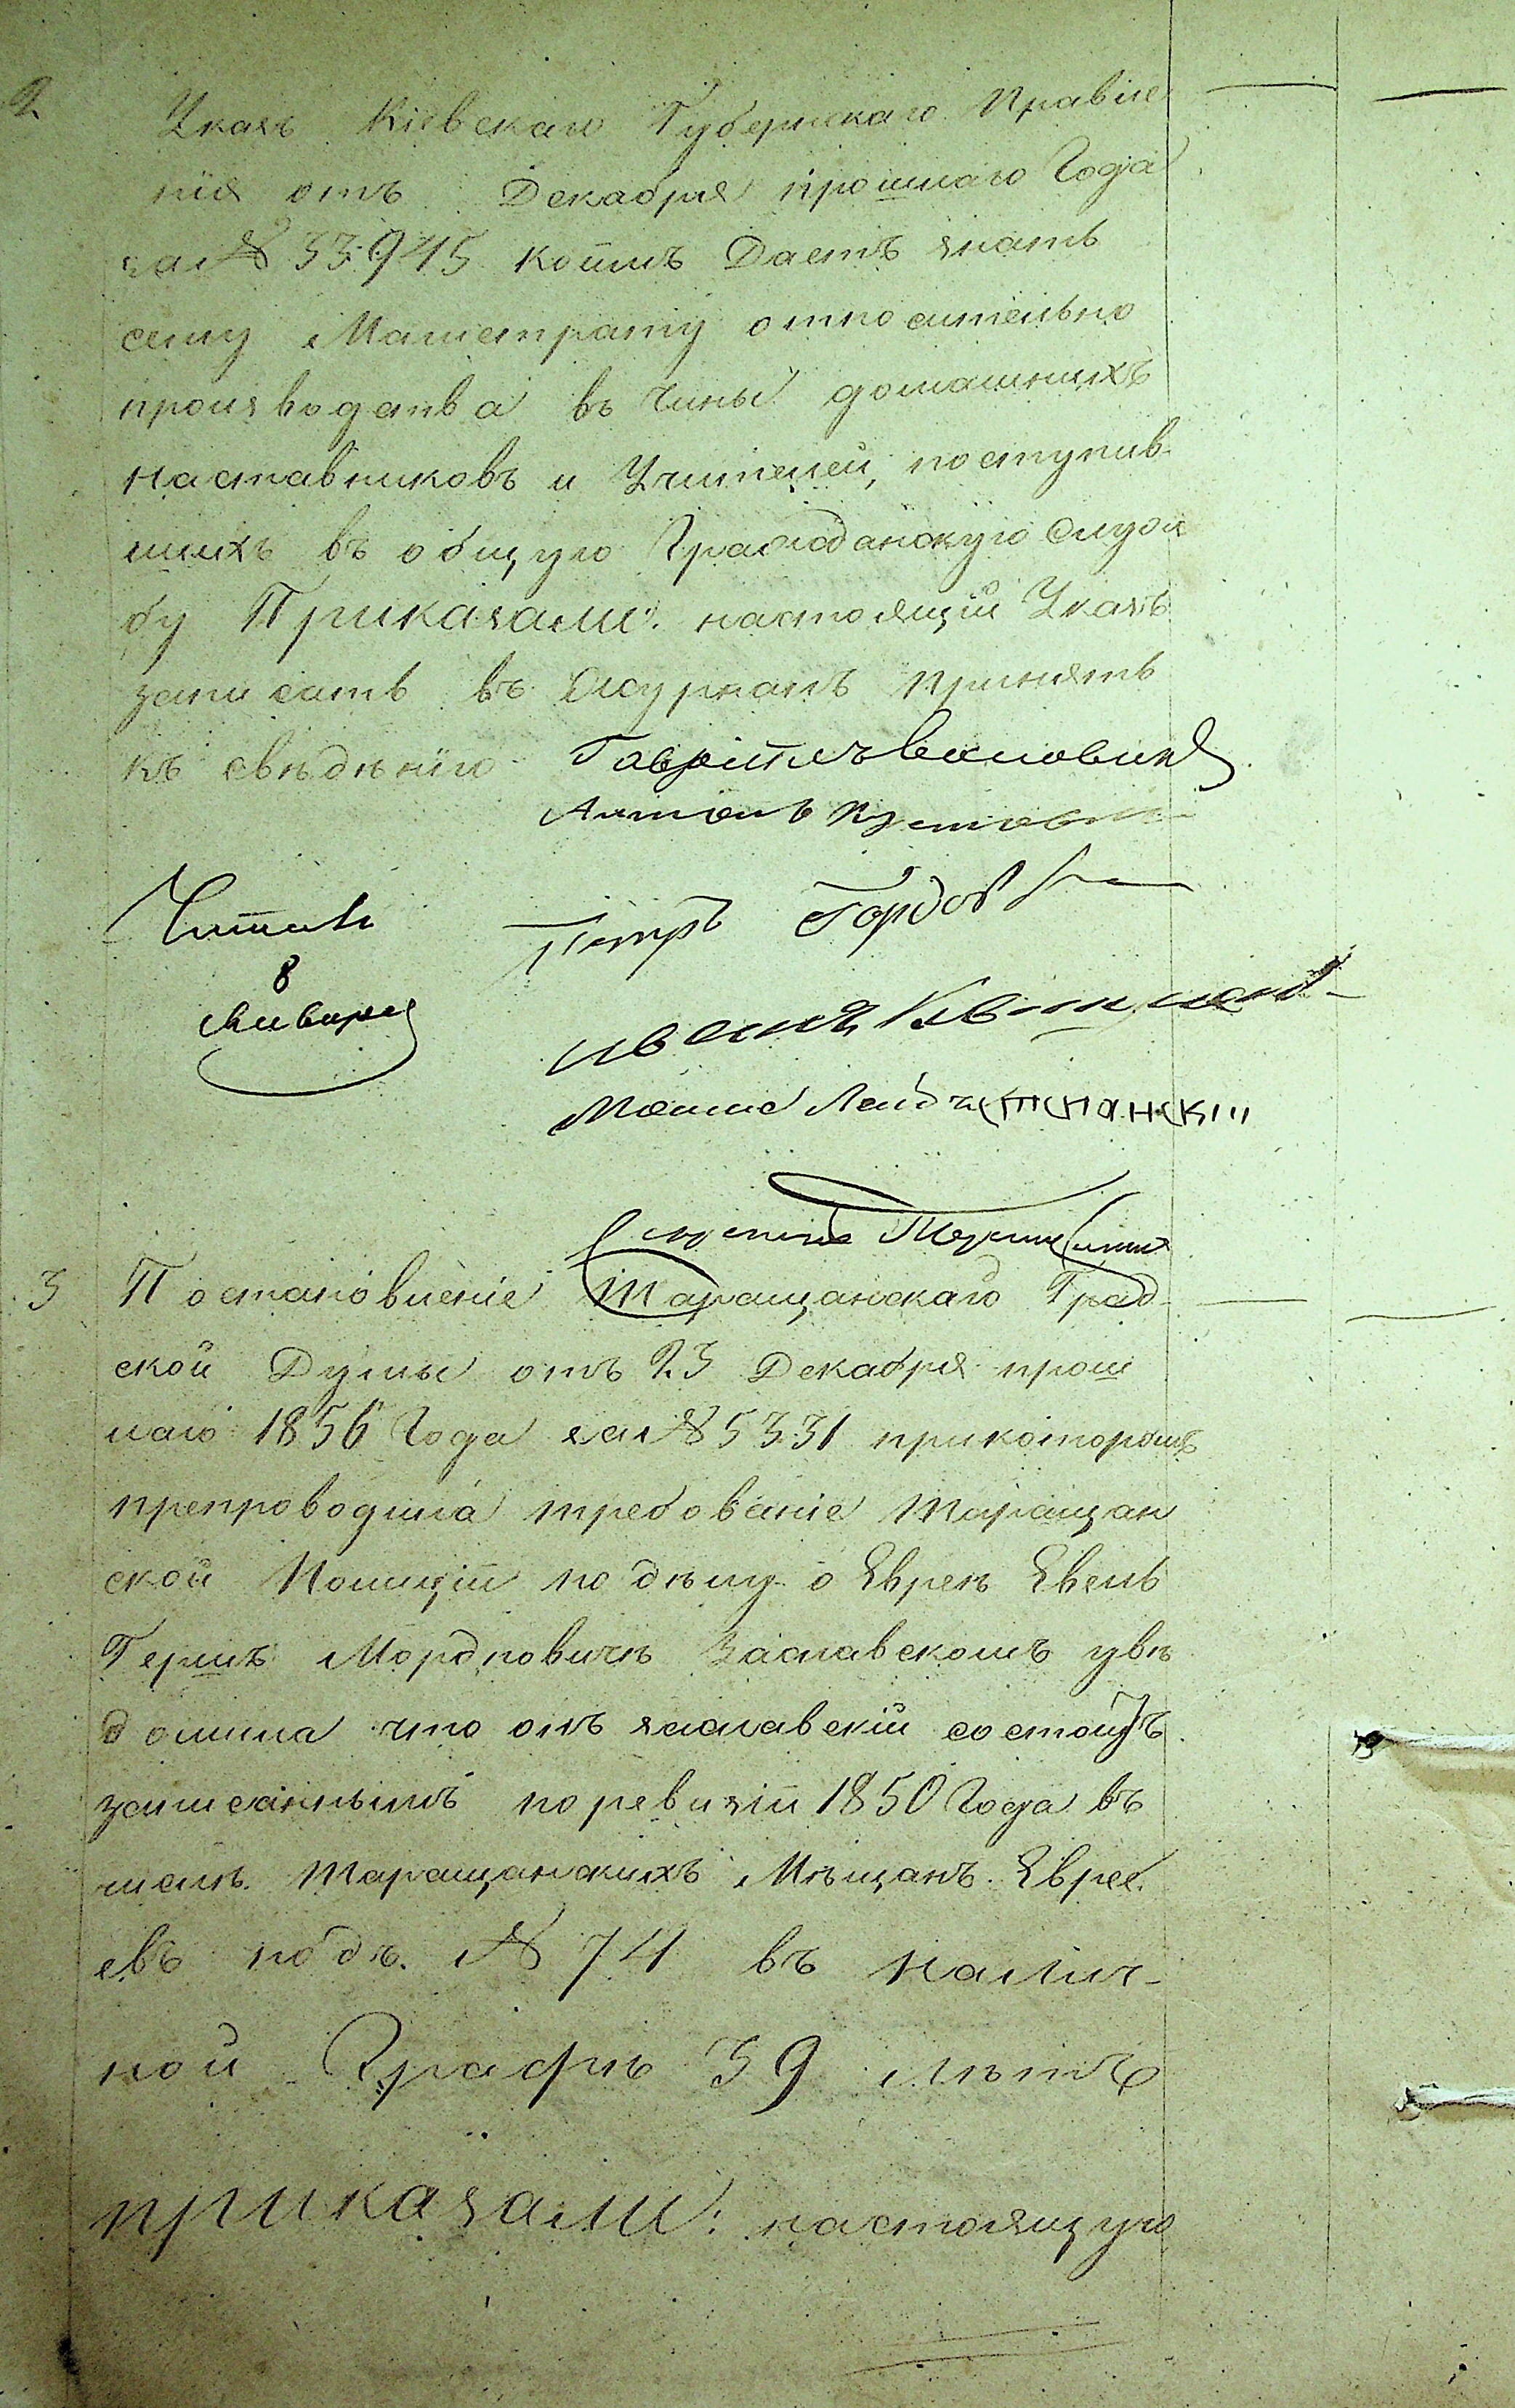 2 Указъ Кіевскаго Губернскаго Правле
нія отъ Декабря прошлаго Года
за № 33945 коимъ Даетъ знать
сему Магистрату относительно
производства въ Чины домашнихъ
наставниковъ и Учителей, поступив-
шихъ въ общую Гражданскую Служ
бу Приказали: настоящій Указъ
записать въ Журналъ принять
къ свѣдѣнію
Антонъ
Читалъ Петръ
8
Января
Мошко
3 Постановленіе Таращанскаго Град-
ской Думы отъ 23 Декабря прош
лаго 1856 Года за № 5331 прикоторомъ
препроводила требованіе Таращан
ской Полиціи по дѣлу о Евреѣ Евель
Гершъ Мордковичѣ Заславскомъ увѣ
домила что онъ заславскій состоитъ
записаннымъ по ревизіи 1850 Года въ
числѣ Таращанскихъ Мѣщанъ Евре
евъ подъ № 74 въ налич-
ной Графѣ 39 лѣтъ
приказали: настоящую